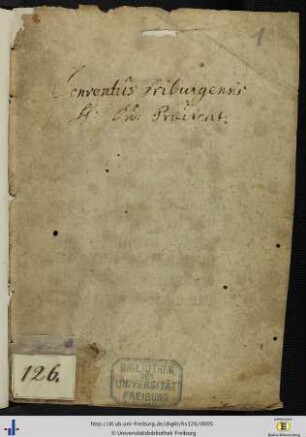 1
Conventûs Friburgensis
Fr: Ord: Prædicat:
126.
BIBLIOTHEK
DER
UNIVERSITÄT
FREIBURG
http://dl.ub.uni-freiburg.de/diglit/hs126/0005
© Universitätsbibliothek Freiburg